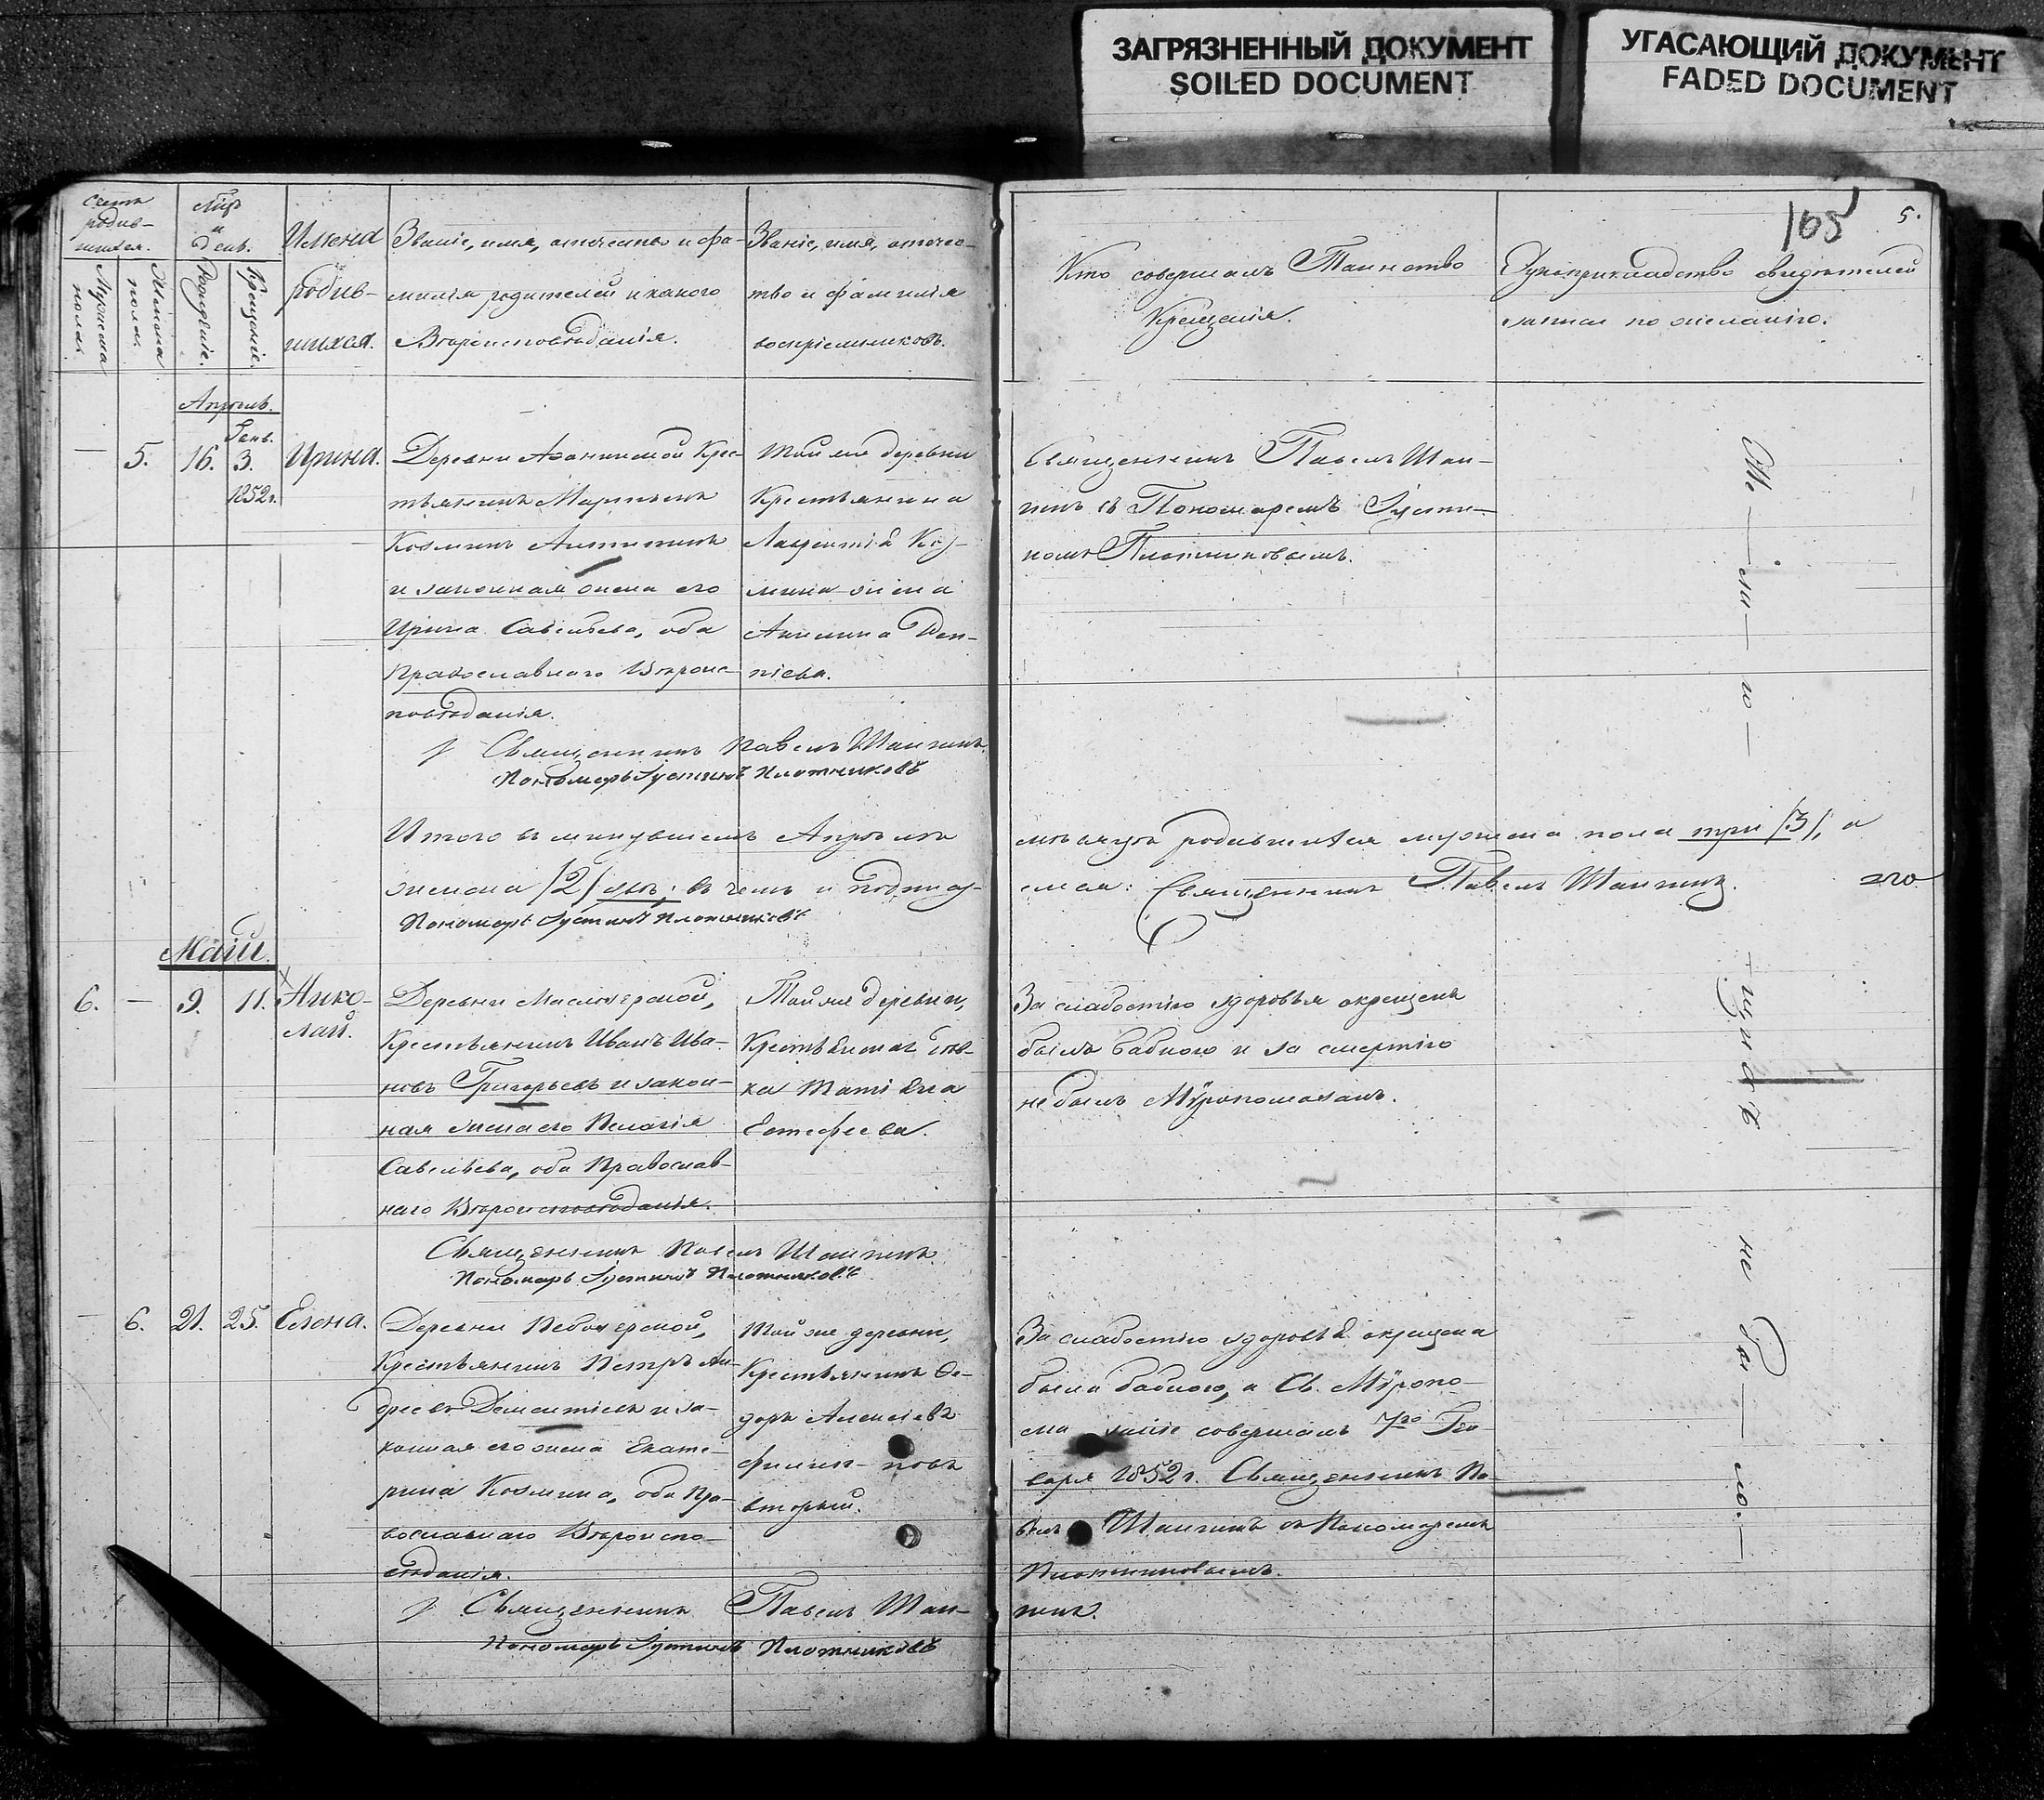 ЗАГРЯЗНЕННЫЙ ДОКУМЕНТ
SOILED DOCUMENT
УГАСАЮЩИЙ ДОКУМЕНТ
FADED DOCUMENT
105
5.
Счетъ родив-шихся.
Мужеска пола.
Женска пола.
Мѣс. и день.
Рожденіе.
Крещеніе.
Имена
родив-
шихся.
Званіе, имя, отчество и фа-
милія родителей и какого
Вѣроисповѣданія.
Званіе, имя, отчес-
тво и фамилія
воспріемниковъ.
Кто совершалъ Таинство
Крещенія.
Рукоприкладство свидѣтелей
записи по желанію.
Апрѣль.
— 5. 16. Генв. 3. 1852г. Ирина.
Деревни Крес-
тьянинъ
Козминъ
и законная жена его
Ирина Савельева, оба
Православнаго Вѣроис-
повѣданія.
Той же деревни
Крестьянина
Лаврентія Коз-
мина жена
Акилина
Священникъ Павелъ Шан-
гинъ съ Пономаремъ Густи-
номъ Плотниковымъ.
Священникъ Павелъ Шангинъ.
Пономарь Густинъ Плотниковъ
Итого въ минувшемъ Апрѣлѣ мѣсяцѣ родившихся мужеска пола три /3/, а
женска /2/ двѣ; въ чемъ и подпису-емся: Священникъ Павелъ Шангинъ.
Пономарь Густинъ Плотниковъ
Май.
6. — 9. 11. Нико-
лай.
Деревни Маслозерской,
Крестьянинъ Иванъ Ива-
новъ Григорьевъ и закон-
ная жена его Пелагія
Савельева, оба Православ-
наго Вѣроисповѣданія.
Той же деревни,
Крестьянская дѣв-
ка Татіана
Евстефеева.
За слабостію здоровья окрещенъ
былъ бабкою и за смертію
не былъ Мѵропомазанъ.
Священникъ Павелъ Шангинъ.
Пономарь Густинъ Плотниковъ
— 6. 21. 25. Елена.
Деревни Пебозерской,
Крестьянинъ Петръ Ан-
дреевъ Дементіевъ и за-
конная его жена Екате-
рина Козмина, оба Пра-
вославнаго Вѣроиспо-
вѣданія.
Той же деревни,
Крестьянинъ Ѳе-
доръ Алексіевъ
вторый.
За слабостію здоровья окрещена
была бабкою, а Св. Мѵропо-
ма заніе совершалъ 7го Ген-
варя 1852г. Священникъ Па-
велъ Шангинъ съ Пономаремъ
Плотниковымъ.
Священникъ Павелъ Шан-гинъ.
Пономарь Густинъ Плотниковъ
не бы — ло. —